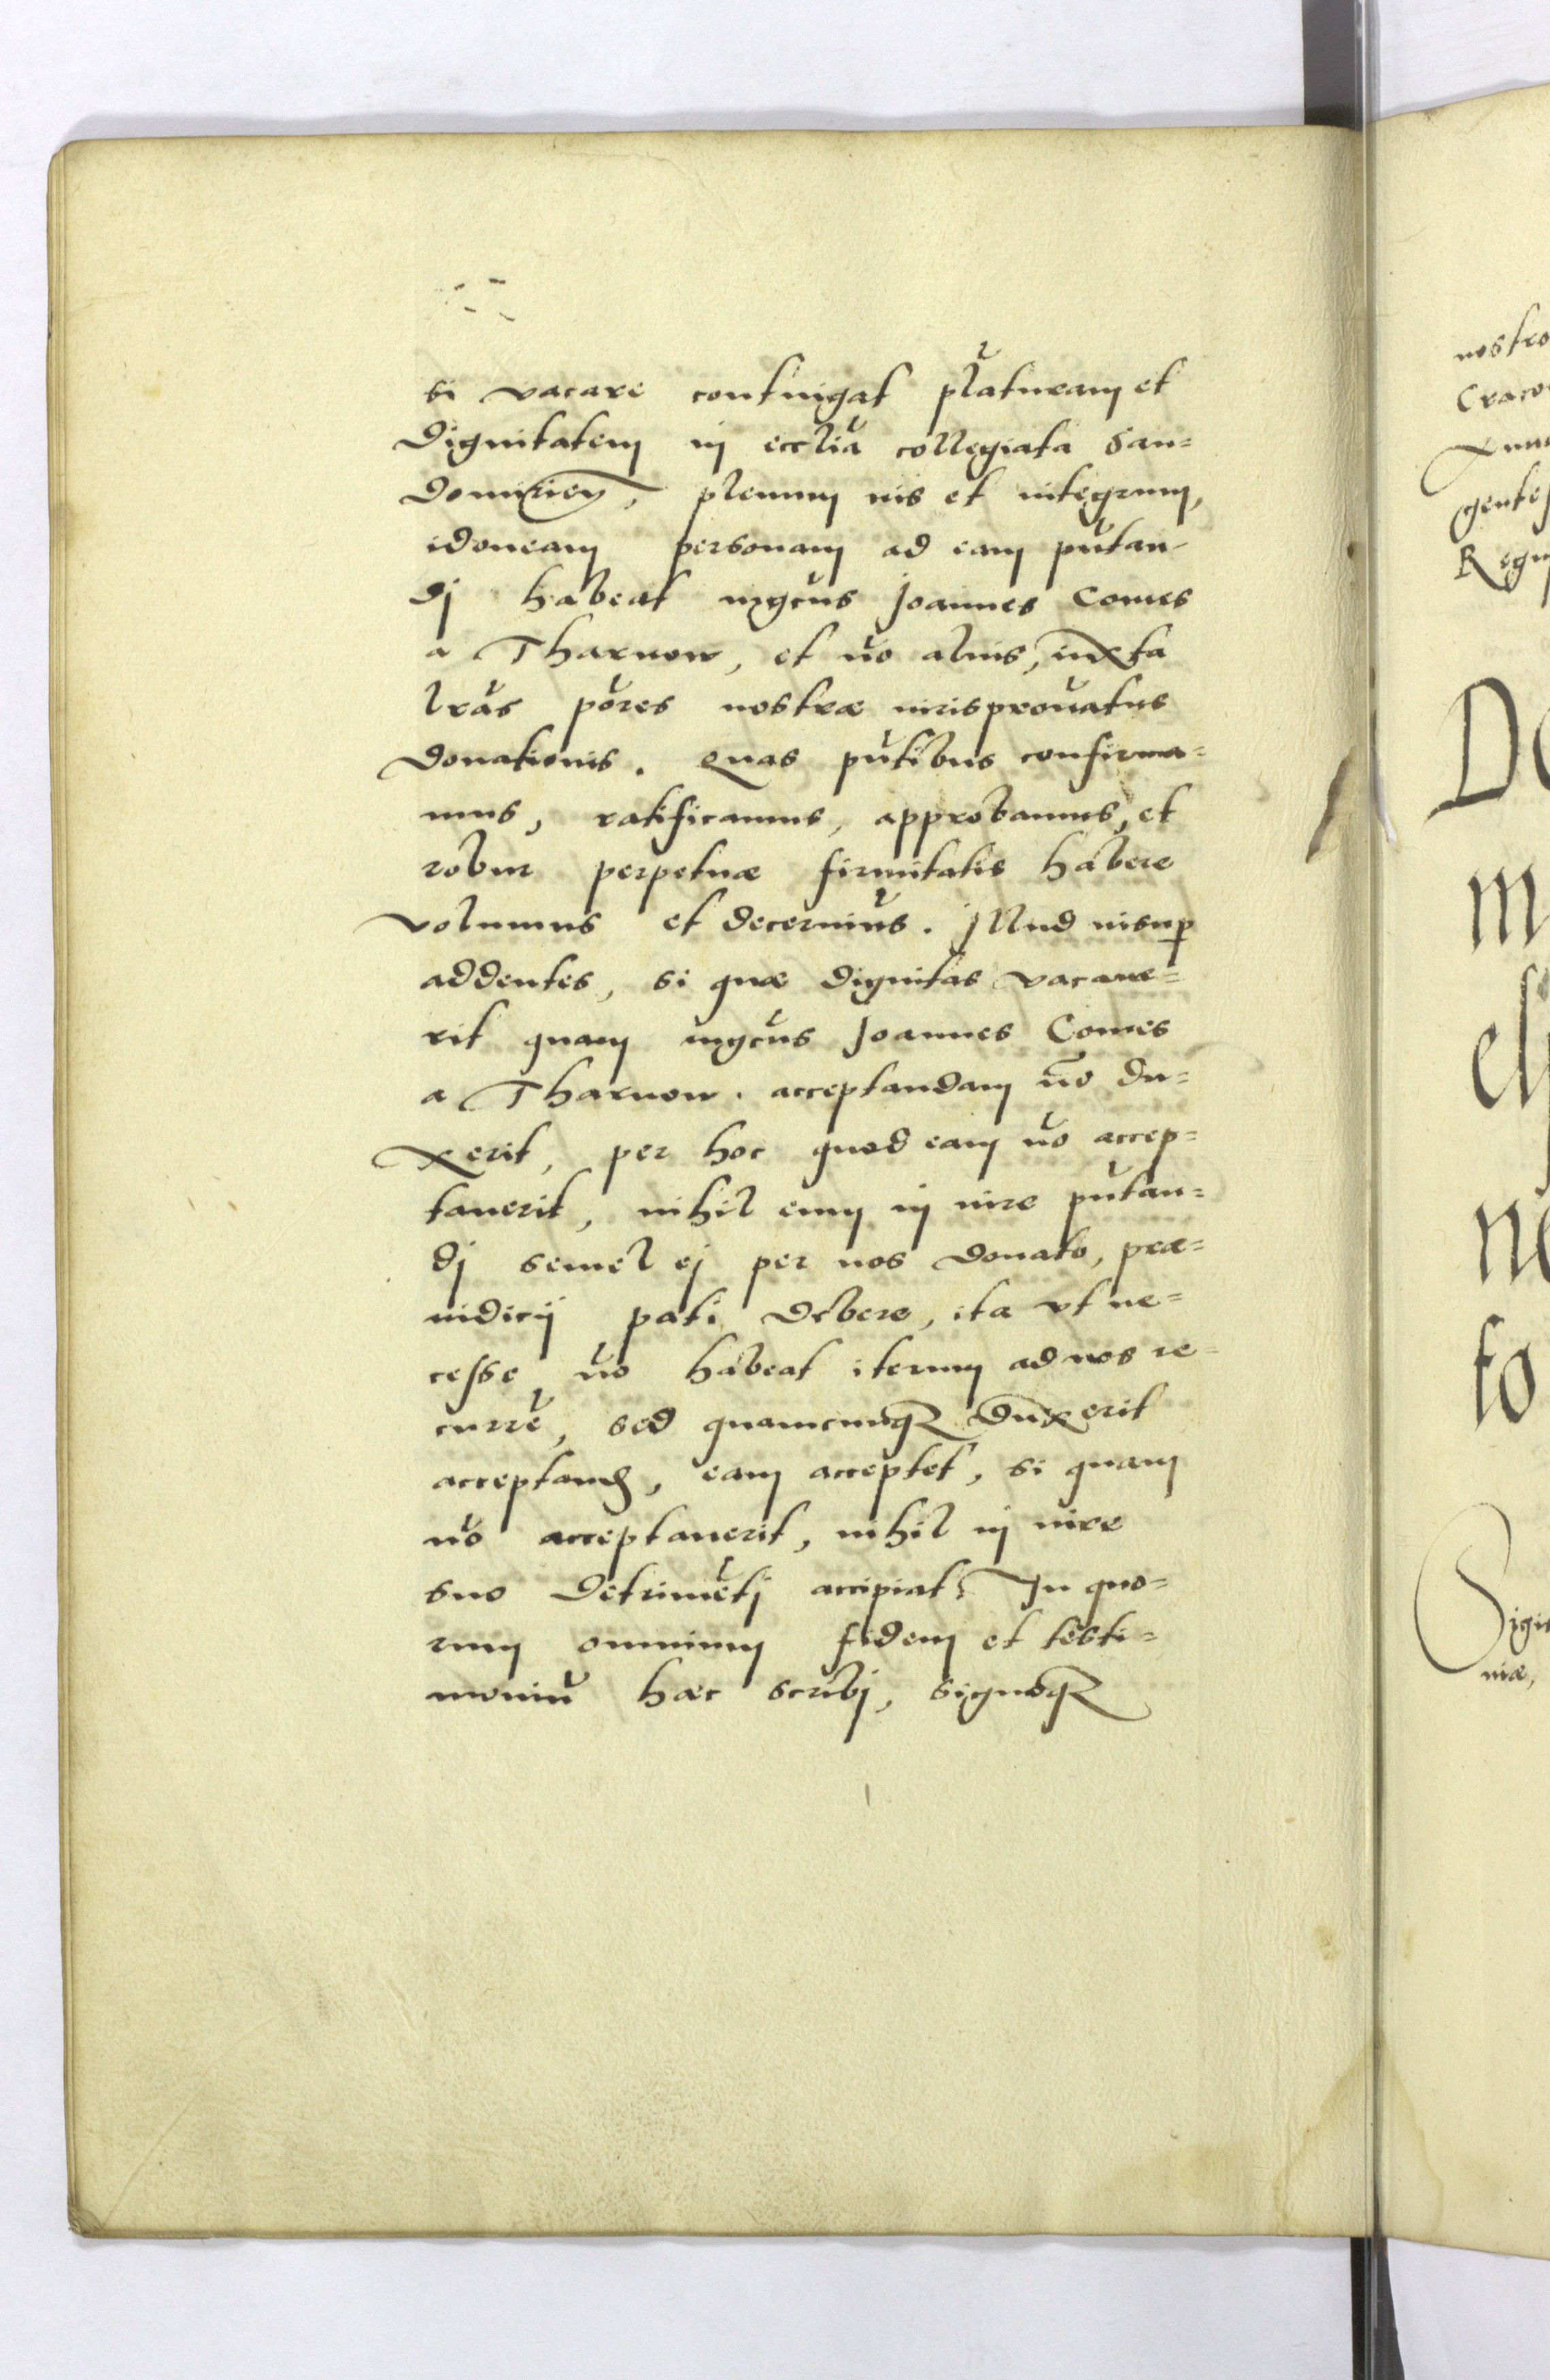 si vacare contingat pl̆aturam et
dignitatem in eccl̆ia collegiata San=
domirien̄, plenum ius et integrum,
idoneam personam ad eam pn̆tan-
dj habeat mgcus̆ Joannes Comes
a Tharnow, et nŏ alius, iuxta
lrăs pŏres nostræ iurispronatus̆
donationis. Quas pn̆tibus confirma=
mus, ratificamus, approbamus, et
robur perpetuæ firmitatis habere
volumus et decernimŭs. Jllud insup̱
addentes, si quæ dignitas vacaue=
rit quam mgcus̆ Joannes Comes
a Tharnow. acceptandam no̅ du=
xerit, per hoc quod eam nŏ accep=
tauerit, nihil eum in iure pn̆tan=
dj semel ej per nos donato, præ=
iudicij pati debere, ita vt ne=
cesse nŏ habeat iterum ad nos re-
currĕ, sed quamcunqꝫ duxerit
acceptand̄, eam acceptet, si quam
nŏ acceptauerit, nihil in iure
suo detrimĕtj accipiat. In quo=
rum omnium fidem et testi=
moniŭ hæc scribj, signoqꝫ
nostro
Craco
gentes
Regn
DO
m
to
Sigi
niæ,